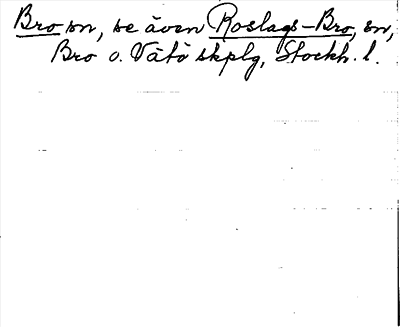 Bro sn, se även Roslags-Bro, sn,
Bro o. Vätö skplg, Stockh. l.